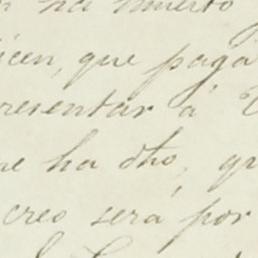 ha muerto
dicen, que paga
presentar á
me ha dho, qu
creo será por